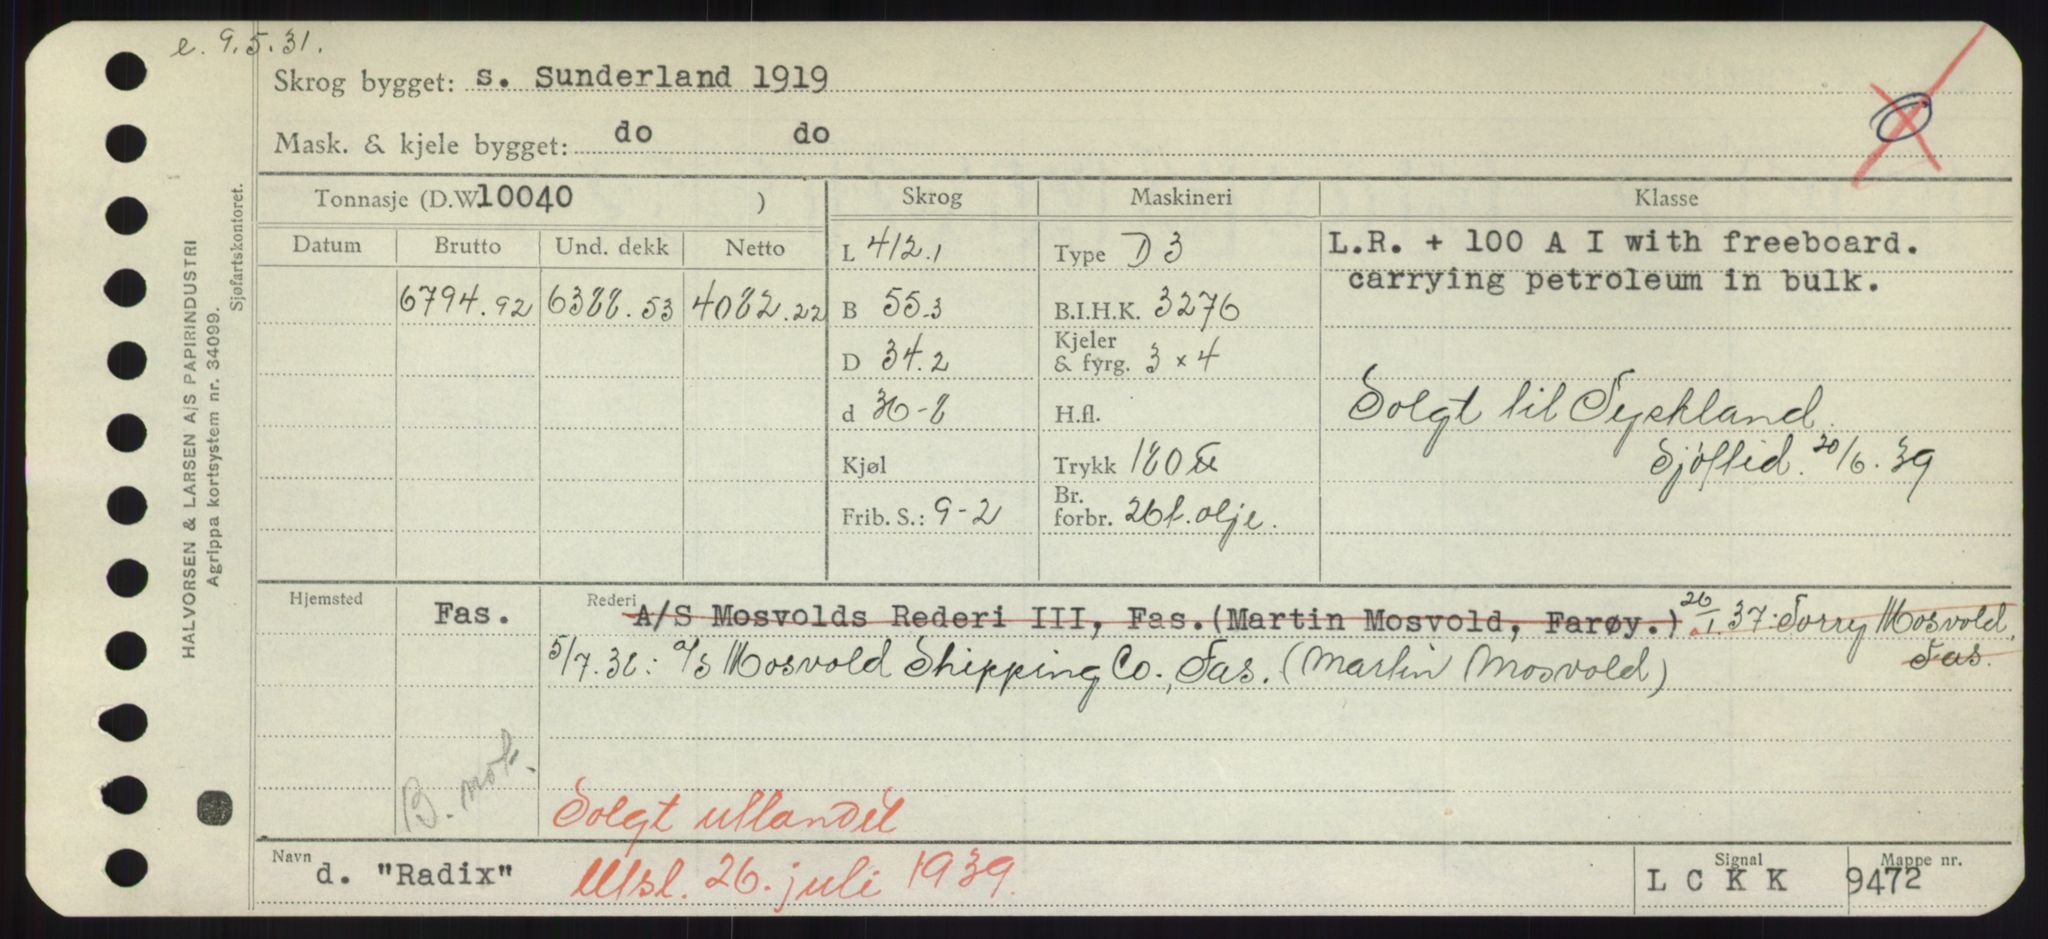 e. 9.5.31.
Skrog bygget: s. Sunderland 1919
Mask. & kjele bygget: do do
Tonnasje (D.W. 10040 ) Skrog Maskineri Klasse
Datum Brutto Und. dekk Netto
6794.92 6388.53 4082.22
L 412.1
B 55.3
D 34.2
d 30-8
Kjøl
Frib. S.: 9-2
Type D 3
B.I.H.K. 3276
Kjeler
& fyrg. 3 × 4
H.fl.
Trykk 180
Br.
forbr. 26 t. olje.
L.R. + 100 A I with freeboard.
carrying petroleum in bulk.
Solgt til Tyskland.
Sjöftid. 20/6.39
Hjemsted Fas.
Rederi A/S Mosvolds Rederi III, Fas. (Martin Mosvold, Farøy.) 26/1.37: Torry Mosvold,
Fas.
5/7.38: A/S Mosvold Shipping Co., Fas. (Martin Mosvold)
B. mot.
Solgt utlandet
Utsl. 26. juli 1939.
Navn d. "Radix"
Signal L C K K
Mappe nr. 9472
HALVORSEN & LARSEN A/S PAPIRINDUSTRI
Agrippa kortsystem nr. 34099.
Sjøfartskontoret.